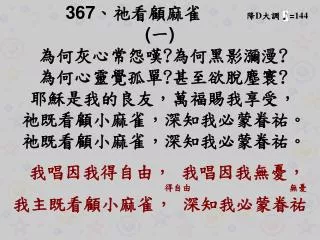 367、祂看顧麻雀 降D大調 ♪=144
(一)
為何灰心常怨嘆?為何黑影瀰漫?
為何心靈覺孤單?甚至欲脫塵寰?
耶穌是我的良友，萬福賜我享受，
祂既看顧小麻雀，深知我必蒙眷祐。
祂既看顧小麻雀，深知我必蒙眷祐。
我唱因我得自由， 我唱因我無憂，
得自由 無憂
我主既看顧小麻雀， 深知我必蒙眷祐